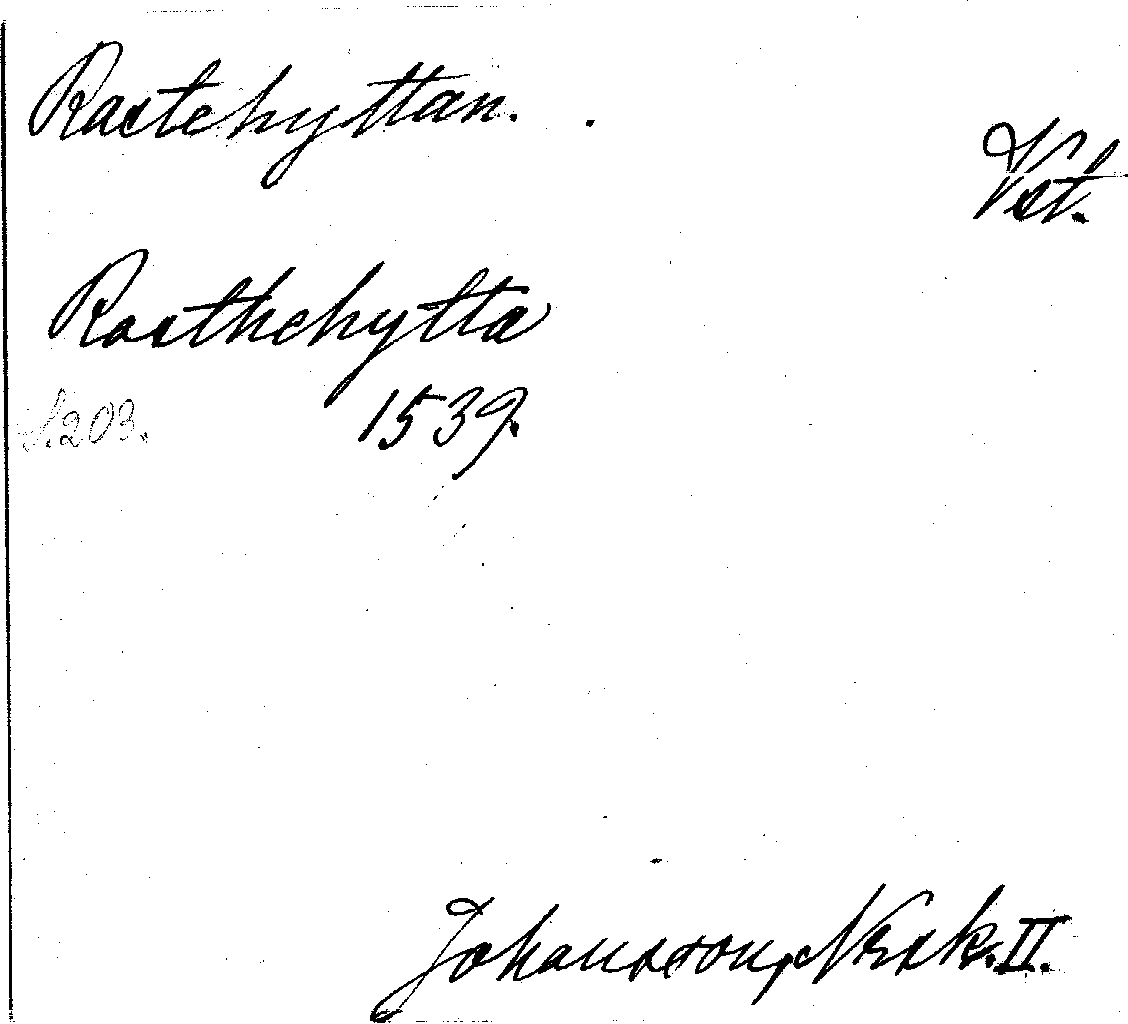 Rastehyttan.
Vst.
Rasthehytta
S. 203. 1539.
Johansson, II.